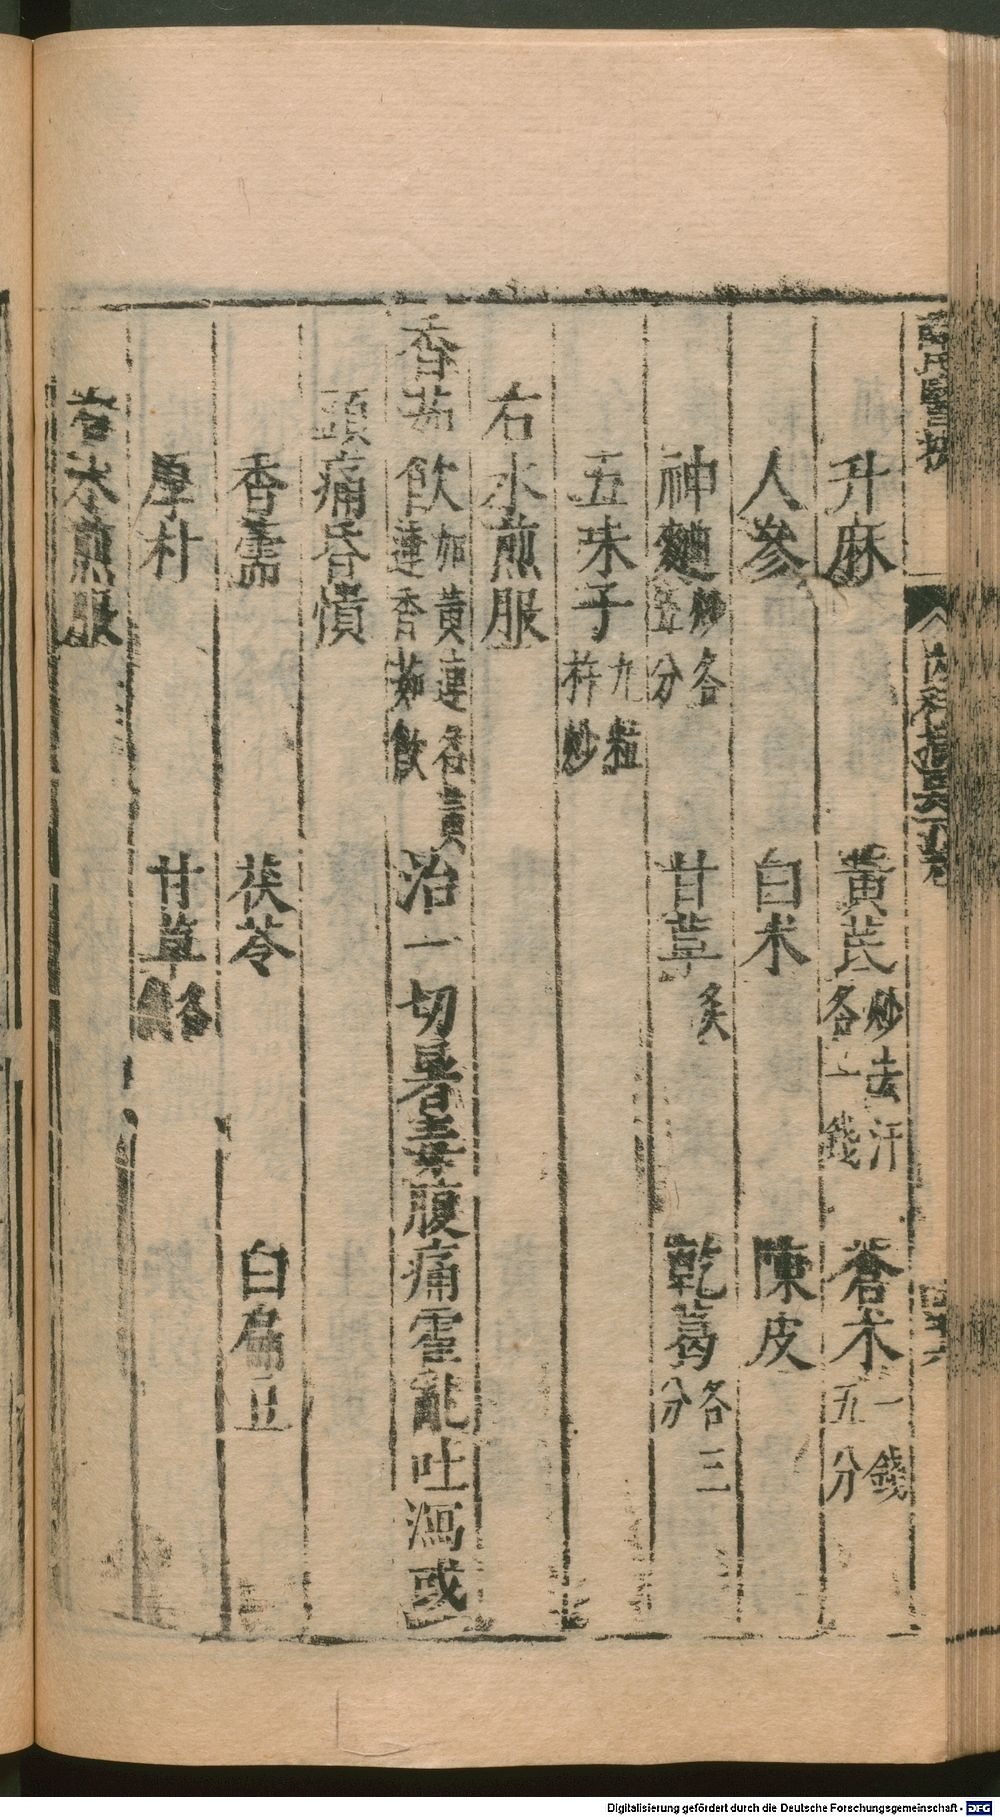 薛氏醫按
內科摘要下卷
升麻 黃芪炒去汗各一錢 蒼朮一錢五分
人參 白朮 陳皮
神麯炒各五分 甘草炙 乾葛各三分
五味子九粒杵炒
右水煎服
香茹飲如黃連名黃蓮香茹飲治一切暑毒腹痛霍亂吐瀉或
頭痛昏憒
香薷 茯苓 白扁豆
厚朴 甘草各
右水煎服
Digitalisierung gefördert durch die Deutsche Forschungsgemeinschaft - DFG